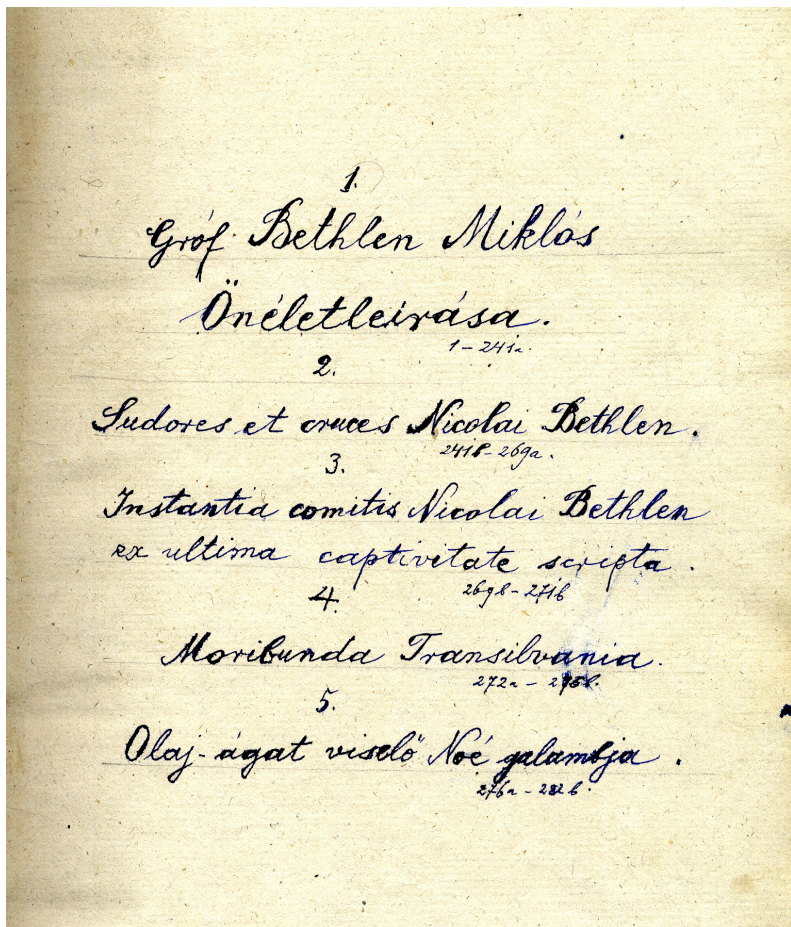 1.
Gróf Bethlen Miklós
Önéletleirása.
1-241a.
2.
Sudores et cruces Nicolai Bethlen.
241b-269a.
3.
Instantia comitis Nicolai Bethlen
ex ultima captivitate scripta.
269b-271b
4.
Moribunda Transilvania.
272a-275b.
5.
Olaj-ágat viselő Noé galambja.
276a-282b.